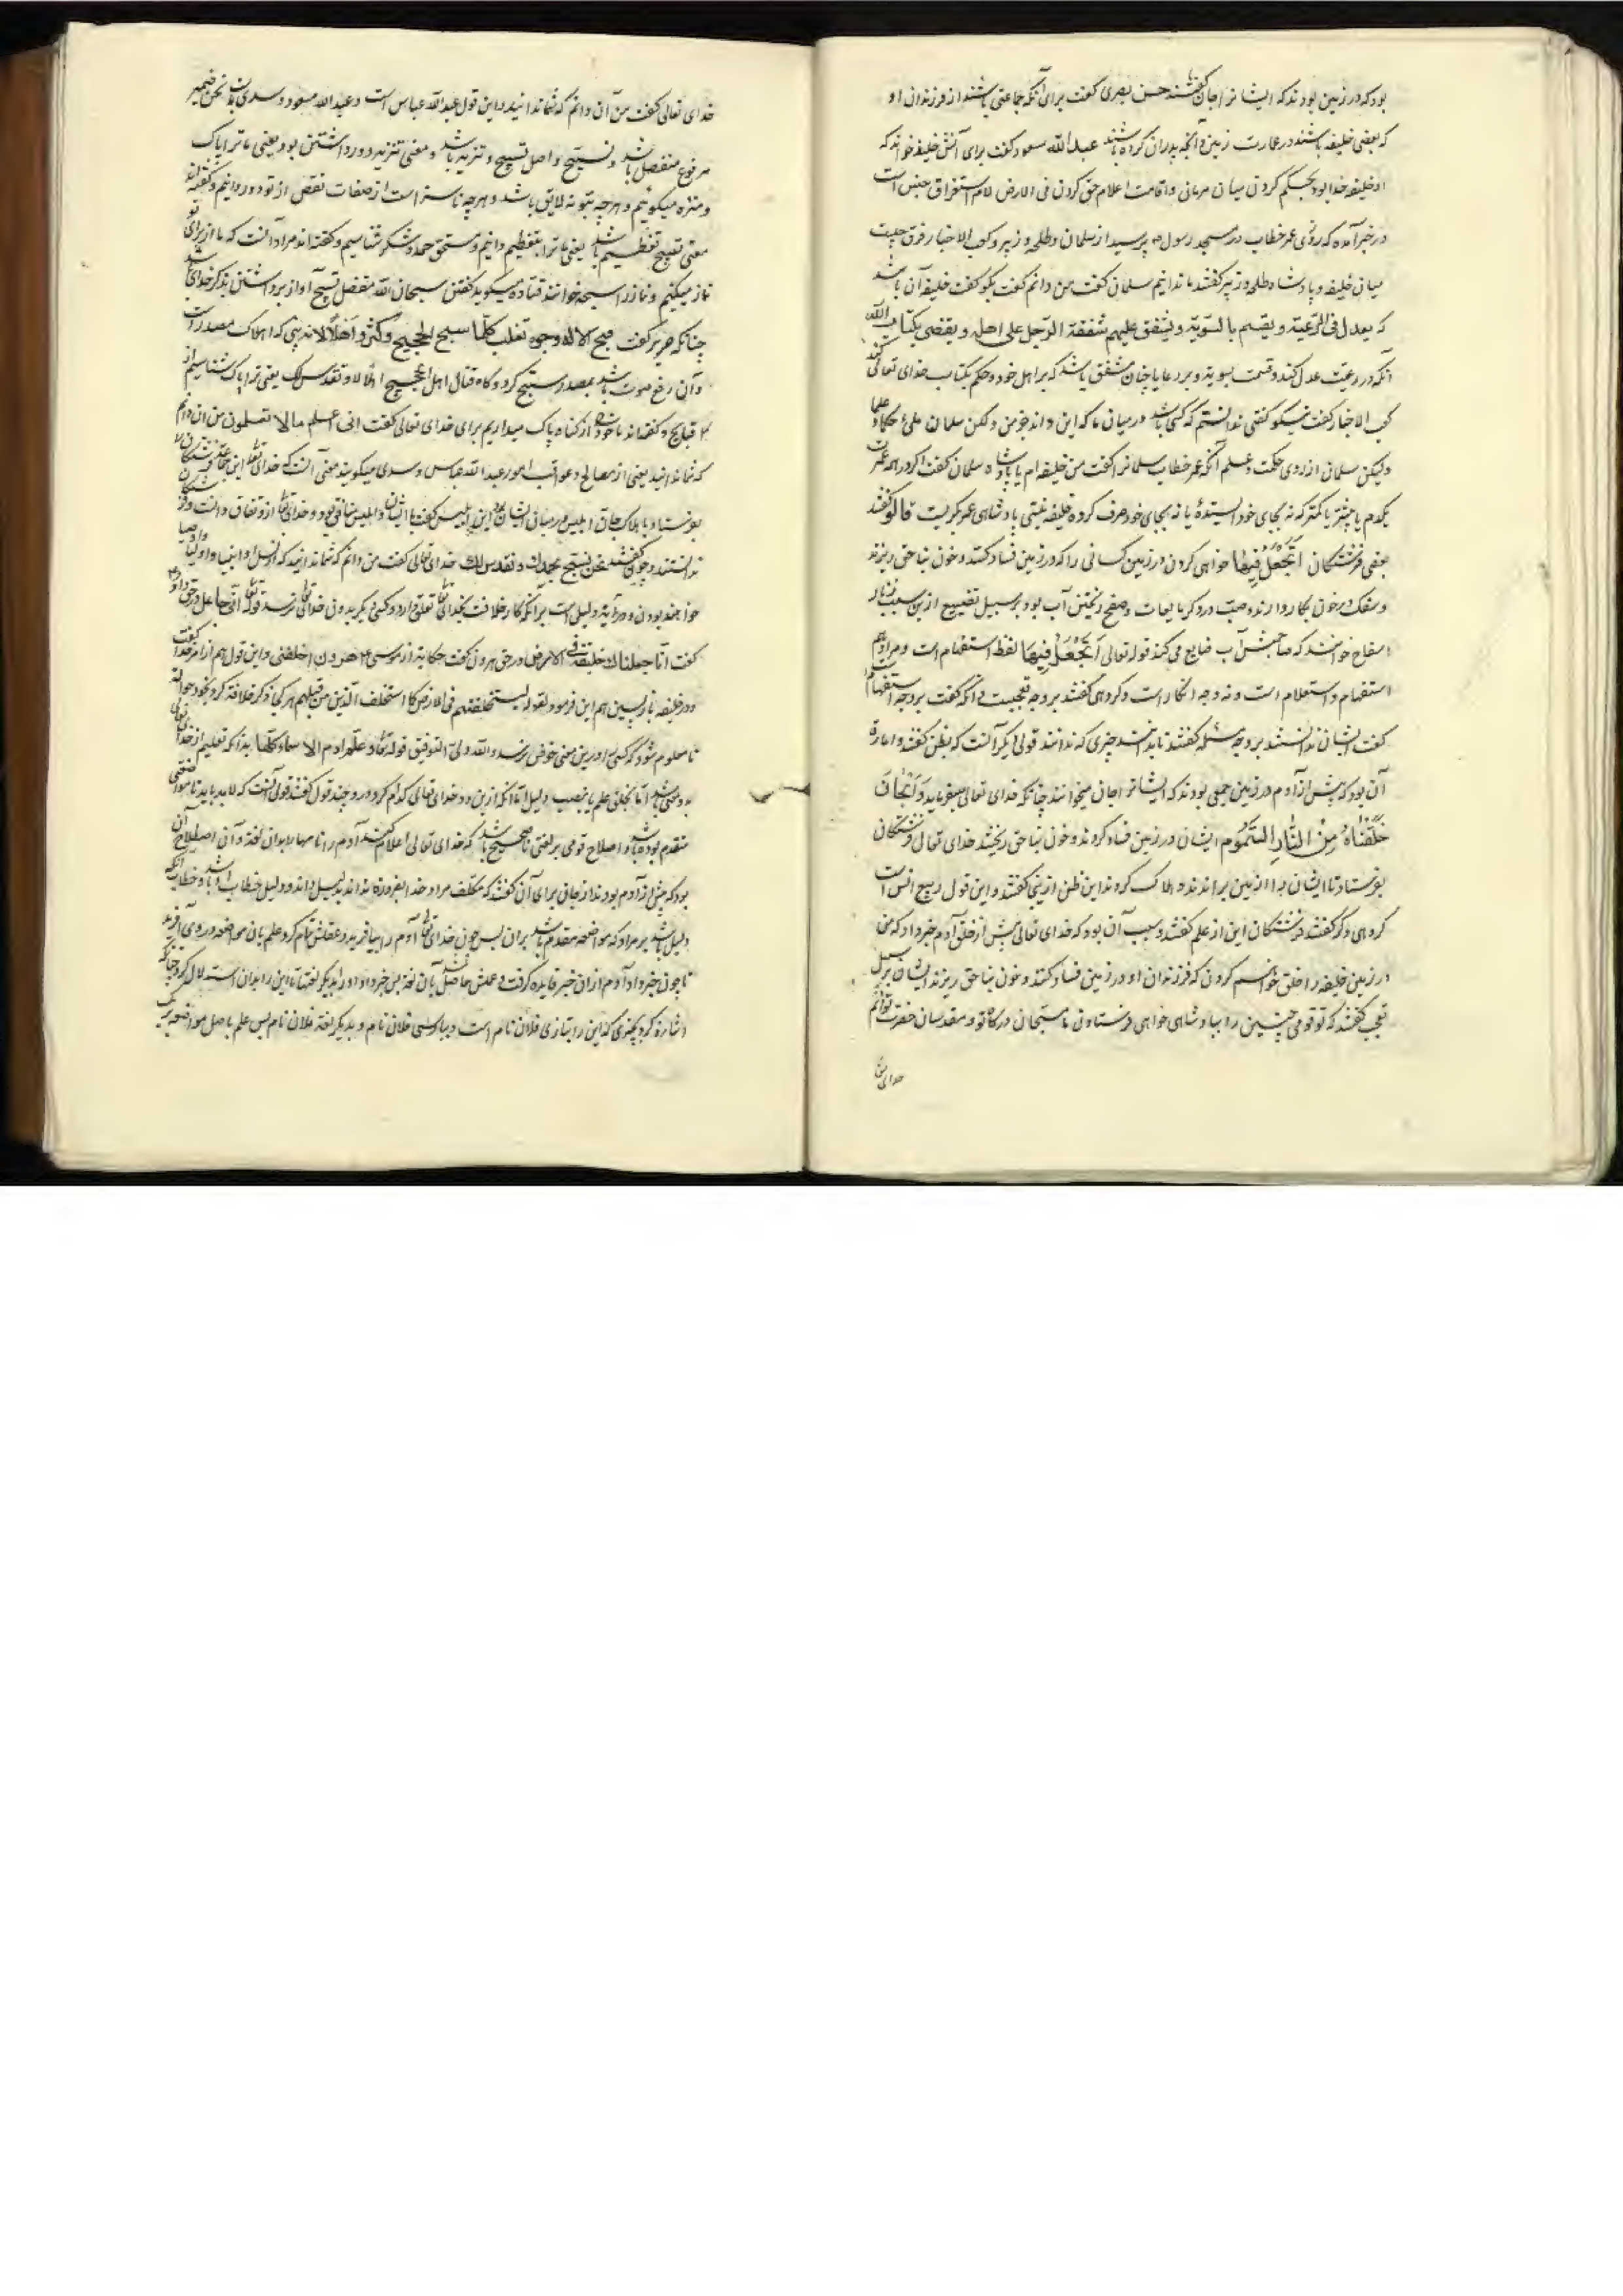 بودکه در زمین بودند که ایشانرا جان گفتند حسن بصری گفت برای آنکه جماعتی باشند از فرزندان او
که بعضی خلیفه باشند در عمارت زمین و آنچه پدران کرده باشند عبدالله مسعود گفت برای آنش خلیفه خواند که
او خلیفه خدا بود بحکم کردن میان مردمان و اقامت اعلام حق کردن فی الارض لام استغراق جنس است
در خبر آمده که روزی عمر خطاب در مسجد رسول پرسید از سلمان و طلحه و زبیر و کعب الاحبار فرق چیست
میان خلیفه و پادشاه طلحه و زبیر گفتند ما ندانیم سلمان گفت من دانم گفت بگو گفت خلیفه آن باشد
که یعدل فی الرعیة و یقسم بالسویة و یشفق علیهم شفقة الرجل علی اهله و یقضی بکتاب الله
آنکه در رعیت عدل کند و قسمت بسویه و بر رعایا چنان مشفق باشد که بر اهل خود و حکم بکتاب خدای تعالی کند
کعب الاحبار گفت نیکو گفتی ندانستم که کسی باشد در میان ما که این داند جز من ولکن سلمان ملئ حکما و علما
ولیکن سلمان از روی حکمت و علم آنگه عمر خطاب سلمانرا گفت من خلیفه ام یا پادشاه سلمان گفت اگر در همه عمرت
یکدرم یا بیشتر یا کمتر که نه بجای خود استیده یا نه بجای خود صرف کرده خلیفه نیستی پادشاهی عمر بگریست قالوا گفتند
بعضی فرشتگان أتجعل فیها خواهی کردن در زمین کسانی را که در زمین فساد کنند و خون بناحق ریزند
و سفک در خون بکار دارند و صب در دیگر مایعات و سفح ریختن آب بود بر سبیل تضییع از این سبب زنا را
سفاح خوانند که صاحبش آب ضایع می کند قوله تعالی أتجعل فیها لفظ استفهام است و مراد هم
استفهام و استعلام است و نه وجه انکار است و گروهی گفتند بر وجه تعجبیت و آنکه گفت بر وجه استفهام است
گفت ایشان ندانستند بر وجه مسئله گفتند تا بدانند چیزی که ندانند قولی دیگر آنست که بظن گفتند و امارة
آن بود که پیش از آدم در زمین جمعی بودند که ایشانرا جان میخوانند چنانکه خدای تعالی میفرماید والجان
خلقناه من النار السموم ایشان در زمین فساد کردند و خون بناحق ریختند خدای تعالی فرشتگان
بفرستاد تا ایشان را از زمین براندند و هلاک کردند این ظن ازینجا گفتند و این قول ربیع انس است
گروهی دگر گفتند فرشتگان این از علم گفتند و سبب آن بود که خدای تعالی پیش از خلق آدم خبر داد که من
در زمین خلیفه را خلق خواهم کردن که فرزندان او در زمین فساد کنند و خون بناحق ریزند ایشان بر سبیل
تعجب گفتند که تو قومی چنین را بپادشاهی خواهی فرستادن ما مسبحان درگاه تو و مقدسان حضرت توائیم
خدای تعالی
خدای تعالی گفت من آن دانم که شما ندانید و این قول عبدالله عباس است و عبدالله مسعود و سدی و نحن ضمیر
مرفوع منفصل باشد و نسبح و اصل تسبیح و تنزیه باشد و معنی تنزیه دور داشتن بود یعنی ما ترا پاک
و منزه میگوئیم و هر چه بتو نه لایق باشد و هر چه ناسزا است از صفات نقص از تو دور دانیم و گفته اند
معنی تسبیح تعظیم باشد یعنی ما ترا بتعظیم دانیم و مستحق حمد و شکر شناسیم و گفته اند مراد آنست که ما از برای تو
نماز میکنیم و نماز را سبحه خوانند قتاده میگوید گفتن سبحان الله مفضل تسبیح آواز برداشتن بذکر خدای باشد
چنانکه جریر گفت قبح الاله وجوه تغلب کلما سبح الحجیج و کبروا اهلالا نه بینی که اهلاک مصدر است
و آن رفع صوت باشد بمصدر سبح کرد و کاه قتال اهل الحجیج اهلالا و نقدس لک یعنی ترا پاک شناسیم از
قبایح و گفته اند ما خود را از گناه پاک میداریم برای خدای تعالی گفت انی اعلم مالا تعلمون من آن دانم
که شما ندانید یعنی از مصالح و عواقب امور عبدالله عباس و سدی میگویند معنی آنست که خدای تعالی این جماعت فرشتگان را
بفرستاد بهلاک جان ابلیس در میان ایشان بود این ابلیس گفت با ایشان و ابلیس منافق بود و خدای تعالی از و نفاق دانست و فرشتگان
ندانستند و چون گفتند نحن نسبح بحمدک و نقدس لک خدای تعالی گفت من دانم که شما ندانید که از نسل او انبیا و اولیا و اوصیا
خواهند بودن و در آیه دلیل است بر آنکه کار خلافت بخدای تعالی تعلق دارد و کسی دیگر بدون خدای تعالی نرسد قوله تعالی انی جاعل و در حق داود
گفت انا جعلناک خلیفة فی الارض و در حق هرون گفت حکایة از موسی هرون اخلفنی و این قول هم از امر خدا گفت
و در خلیفه باز پسین هم این فرمود لقوله لیستخلفنهم فی الارض کما استخلف الذین من قبلهم هر کجا ذکر خلافت کرد بخود حواله
تا معلوم شود که کسی را درین معنی خوض نرسد والله ولی التوفیق قوله تعالی و علم ادم الاسماء کلها بدانکه تعلیم از خدای تعالی
بدو معنی باشد اما بخلق علم یا بنصب دلیل اما آنکه ازین دو خدای تعالی کدام کرد درو چند قول گفتند قولی آنست که لابد باید تا مواضعتی
متقدم بوده باشد و اصطلاح قومی بر لغتی تا صحیح باشد که خدای تعالی اعلام کند آدم را نامها را بدان لغة و آن اصطلاح آن
بود که پیش از آدم بودند از جان برای آن گفتند که مکلف مراد خدا بضرورة نداند بدلیل داند و دلیل خطاب او باشد و خطاب آنگه
دلیل باشد بر مراد که مواضعه متقدم باشد بران پس چون خدای تعالی آدم را بیافرید و عقلش تمام کرد علم بآن مواضعه در وی آفرید
تا چون خبر داد آدم از آن خبر فایده گرفت و علمش حاصل شد بآن لغة پس خبر داد او را بدیگر لغتها تا این را بدان استدلال کرد چنانکه
اشاره کرد بچیزی که این را بتازی فلان نام است و بپارسی فلان نام و بدیگر لغة فلان نام پس علم باصل مواضعه یک